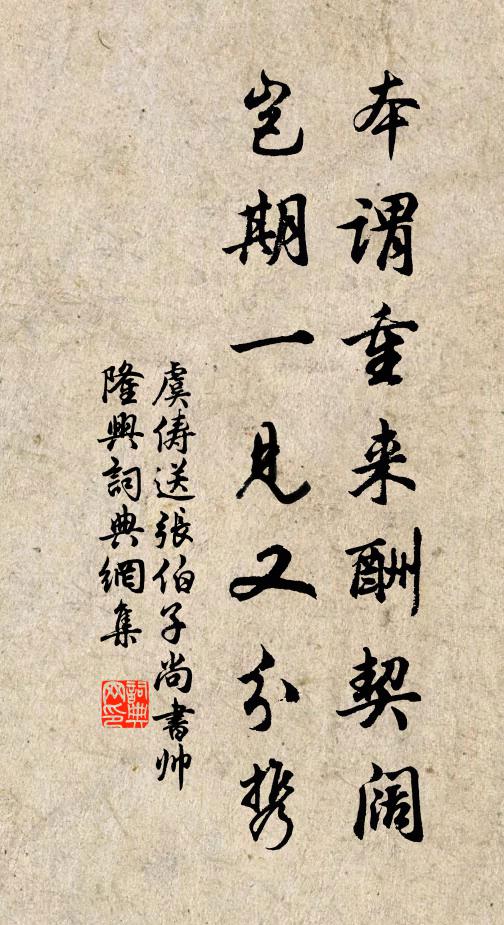 本谓重来酬契阔
岂期一见又分携
虞俦送張伯子尚書帅
隆興詞典網集
詞典
网印